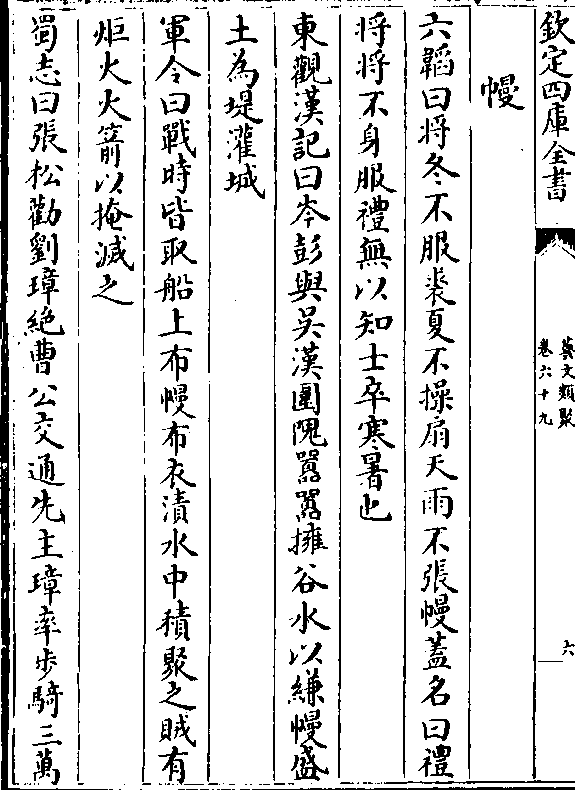 欽定四庫全書
藝文類聚
卷六十九
六
幔
六韜曰将冬不服裘夏不操扇天雨不張幔蓋名曰禮
将将不身服禮無以知士卒寒暑也
東觀漢記曰岑彭與吳漢圍隗囂囂擁谷水以縑幔盛
土為堤灌城
軍令曰戰時皆取船上布幔布衣漬水中積聚之賊有
炬火火箭以掩滅之
蜀志曰張松勸劉璋絶曹公交通先主璋率步騎三萬